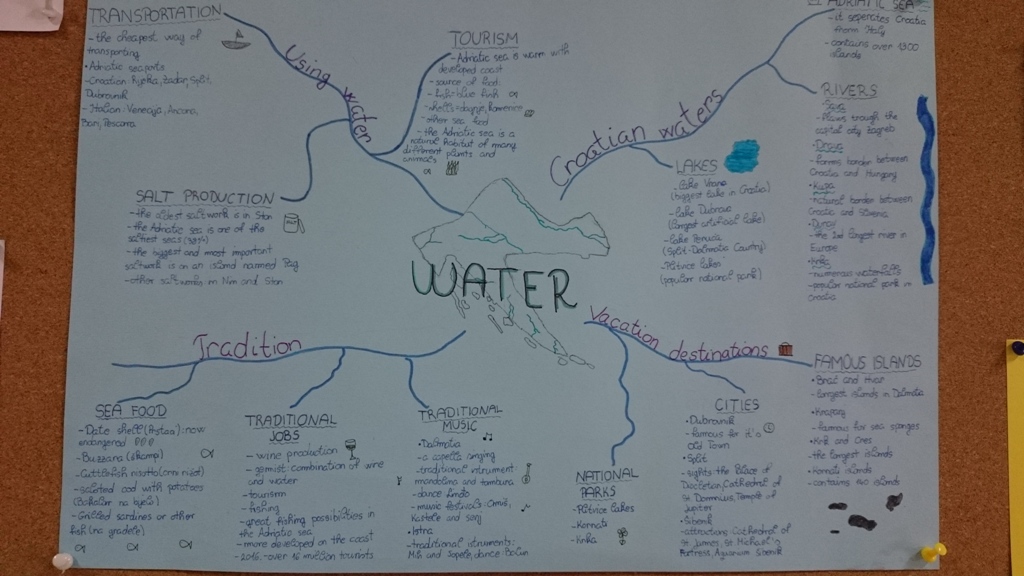 TRANSPORTATION
- the cheapest way of
transporting
• Adriatic seaports
- Croatian: Rijeka, Zadar, Split,
Dubrovnik
- Italian: Ancona,
Bari, Pescara
Using water
TOURISM
- Adriatic sea is warm with
developed coast
- source of food:
- fish-blue fish
- other sea food
- the Adriatic sea is a
natural habitat of many
different plants and
animals
SALT PRODUCTION
- the oldest saltwork is in Ston
- the Adriatic sea is one of the
saltiest seas
- the biggest and most important
saltwork is on an island named Pag
- other saltworks in Nin and Ston
Croatian waters
ADRIATIC SEA
- it seperates Croatia
from Italy
- contains over 1300
islands
RIVERS
Sava
- Flows trough the
capital city Zagreb
• Drava
- forms border between
Croatia and Hungary
• Kupa
- natural border between
Croatia and Slovenia
- the 2nd largest river in
Europe
• Krka
- numerous waterfalls
- popular national park in
Croatia
LAKES
- Lake Vrana
(biggest lake in Croatia)
- Lake Dubrava
(largest artificial lake)
- Lake Peruča
(Split-Dalmatia County)
- Plitvice lakes
(popular national park)
WATER
Tradition
SEA FOOD
- Date shell : now
endangered
- Buzzara (shrimp)
- Cuttlefish risotto (crni rižot)
- salted cod with potatoes
(Bakalar na bijelo)
- Grilled sardines or other
fish (na gradele)
TRADITIONAL
JOBS
- wine production
- gemist combination of wine
and water
- tourism
- fishing
- great fishing possibilities in
the Adriatic sea
- more developed on the coast
- 2016. - over 16 million tourists
TRADITIONAL
MUSIC
• Dalmatia
- a capella singing
- traditional intrument
mandolina and tambura
- dance lindo
- music festivals: Omiš,
Kaštele and
• Istra
- traditional intruments:
Mih and Sopele, dance Balun
Vacation destinations
NATIONAL
PARKS
- Plitvice lakes
- Kornati
- Krka
CITIES
• Dubrovnik
- famous for it's
Old Town
• Split
- sights the Palace of
Diocletian, Cathedral of
St Domnius, Temple of
Jupiter
• Šibenik
- attractions Cathedral of
St James, St Michael's
Fortress, Aquarium Šibenik
FAMOUS ISLANDS
• Brač and Hvar
- largest islands in Dalmatia
• Krapanj
- famous for sea sponges
• Krk and Cres
- the largest islands
• Kornati islands
- contains islands